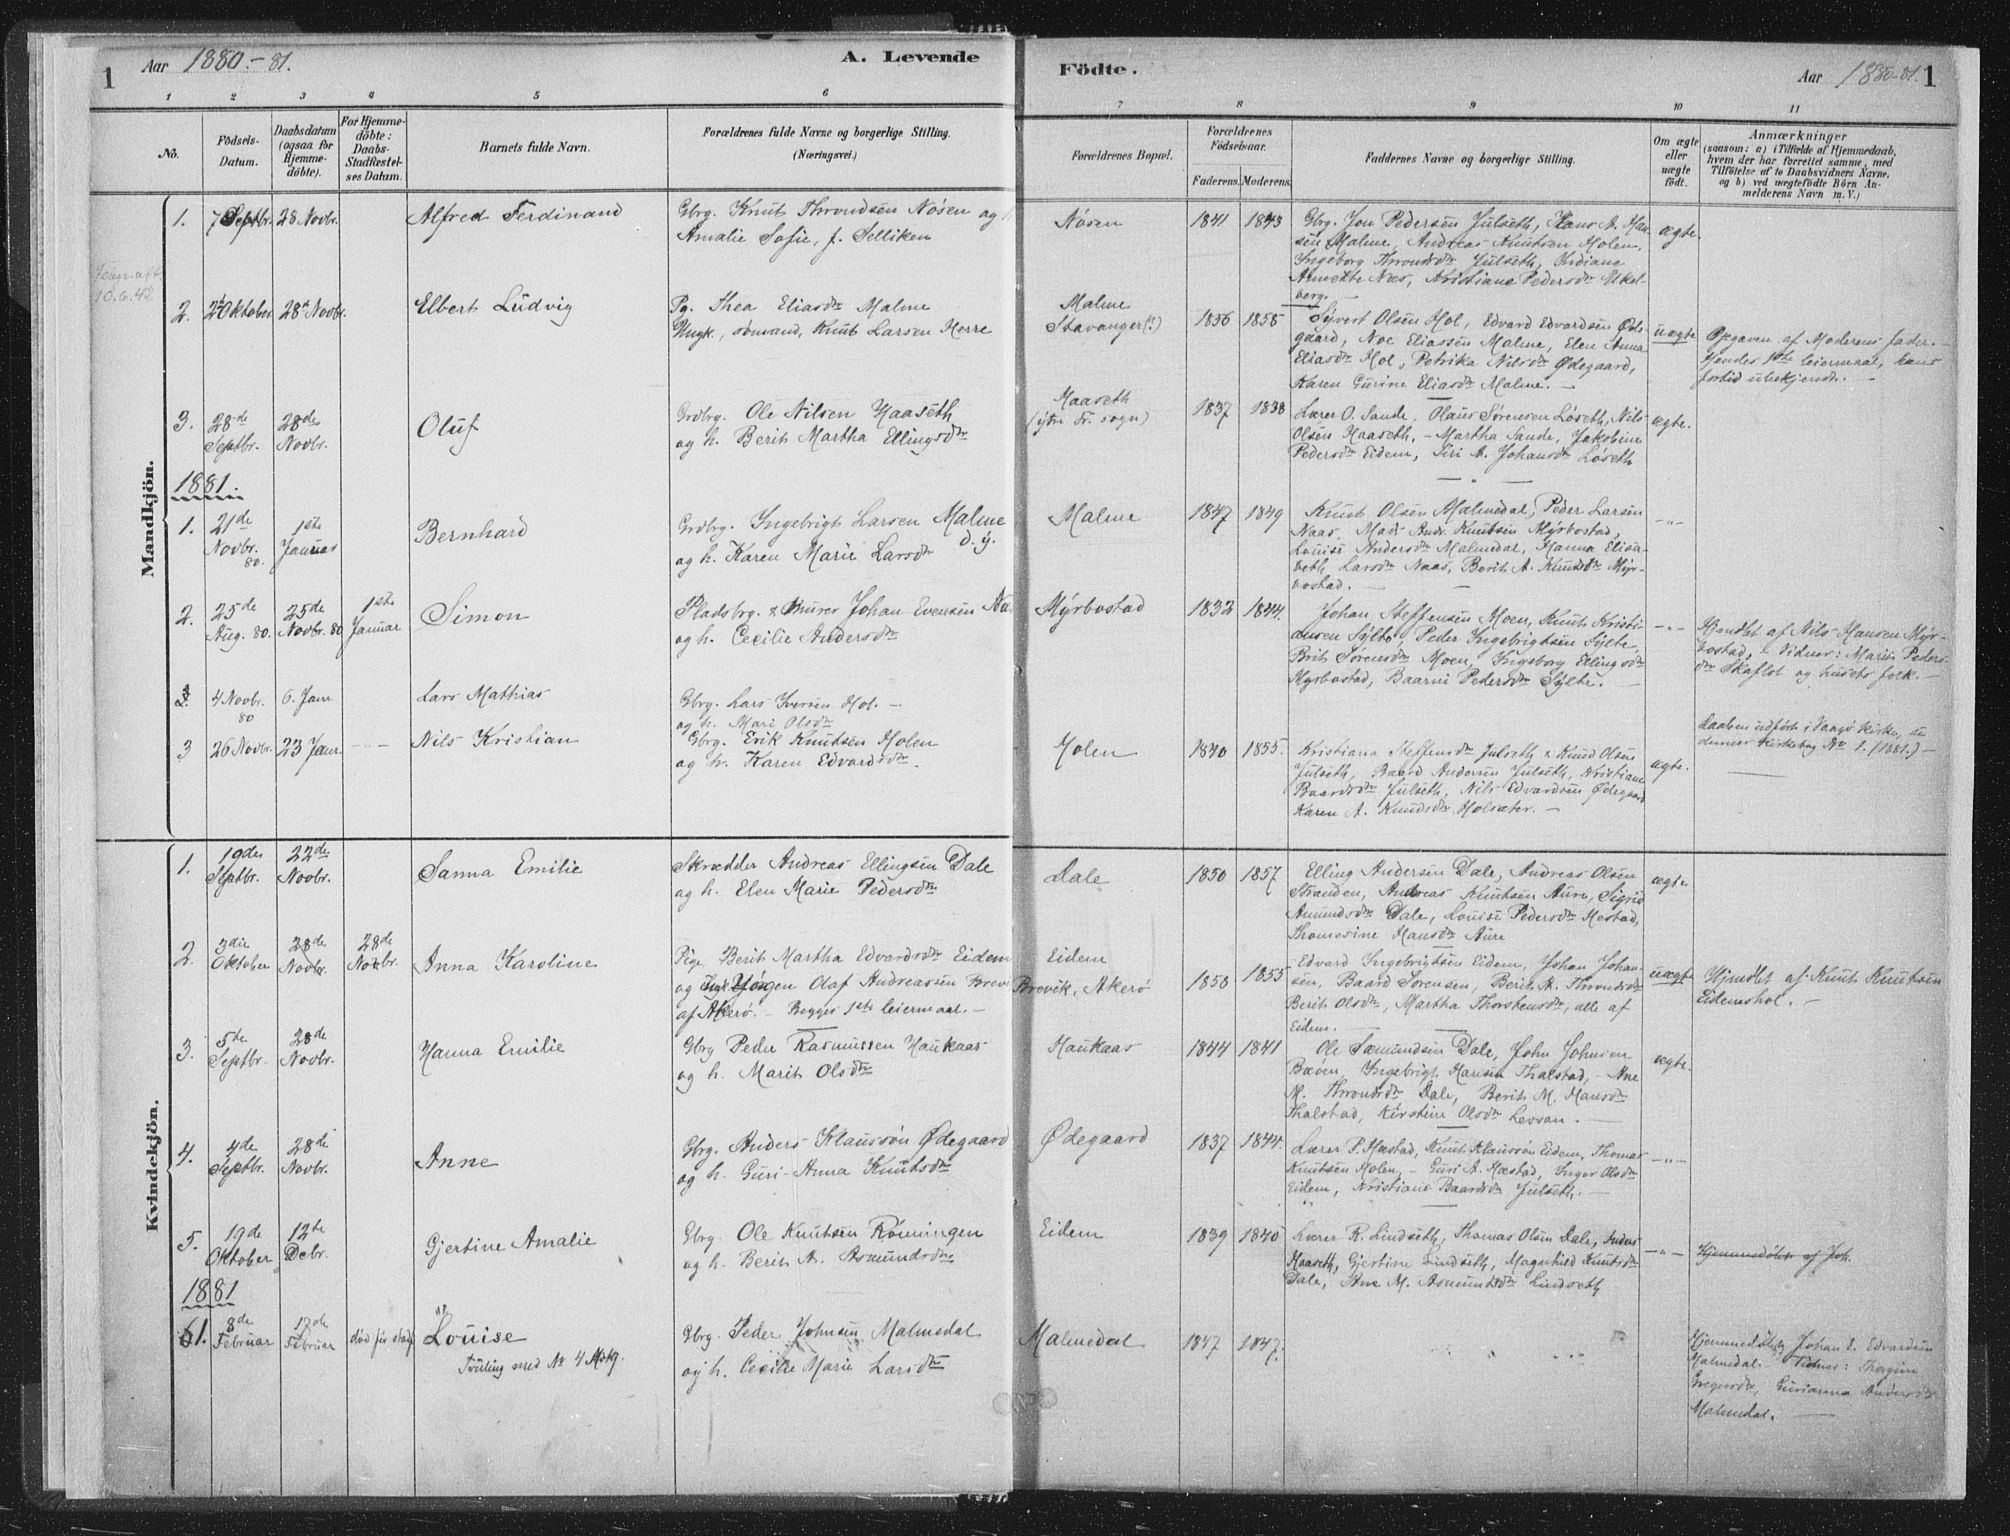 1 Aar 1880.-81. A. Levende
Födte. Aar 1880-81. 1
1 2 3 4 5 6 7 8 9 10 11
No.
Födsels-
Datum.
Daabsdatum
(ogsaa for
Hjemme-
döbte).
For Hjemme-
döbte:
Daabs-
Stadfæstel-
ses Datum.
Barnets fulde Navn.
Forældrenes fulde Navne og borgerlige Stilling.
(Næringsvei.)
Forældrenes Bopæl.
Forældrenes
Födselsaar.
Faderens. Moderens.
Faddernes Navne og borgerlige Stilling.
Om ægte
eller
uægte
födt.
Anmærkninger
(saasom: a) i Tilfælde af Hjemmedaab,
hvem der har forrettet samme, med
Tilföielse af to Daabsvidners Navne,
og b) ved uægtefödte Börn An-
melderens Navn m. V.)
Mandkjön.
1. 7 Septbr. 28 Novbr. Alfred Ferdinand
Gbrg. Knut Throndsen Nøsen og
Amalie Sofie, f. Selliken
Nøsen 1841 1843
Gbrg. Jon Pedersen Julseth, Hans A. Han-
sen Malme, Andreas Knutsen Molen,
Ingeborg Throndsdtr Julseth, Indiana
Annette Næs, Kristiane Pedersdtr Ukel-
berg.
ægte.
10.6.42
2. 2 Oktober 28 Novbr. Elbert Ludvig
Pg. Thea Eliasdtr Malme
Ungk., sømand, Knut Larsen Herre
Malme
Stavanger(?)
1856 1858
Syvert Olsen Hol, Edvard Edvardsen Øde-
gaard, Noe Eliassen Malme, Elen Anna
Eliasdtr Hol, Petrika Nilsdtr Ødegaard,
Karen Gurine Eliasdtr Malme.
uægte
Opgaven af Moderens fader.
Hendes 1ste leiermaal, hans
fortid ubekjendt.
3. 28de Septbr. 28de Novbr. Oluf
Grdbrg. Ole Nilsen Haaseth
og h. Berit Martha Ellingsdtr
Haaseth
(ytre Fr. sogn)
1837 1838
Lærer O. Sande, Olaus Sørensen Løseth, Nils
Olsen Haaseth, - Martha Sande, Jakobine
Pedersdtr Eidem, Siri A. Johansdtr Løseth
ægte.
1881.
1. 21de Novbr. 80. 1ste Januar Bernhard
Grdbrg. Ingebrigt Larsen Malme d. y.
og h. Karen Marie Larsdtr
Malme 1847 1849
Knut Olsen Malmedal, Peder Larsen
Naas, Mads Andr. Knutsen Myrbostad,
Louise Andersdtr Malmedal, Hanna Elisa-
beth Larsdtr Naas, Berit A. Knutsdtr Myr-
bostad.
-"-
2. 25de Aug. 80. 25de Novbr. 80 1ste Januar Simon
Pladsbrg. & murer Johan Evensen
og h. Cecilie Andersdtr
Myrbostad 1832 1844.
Johan Steffensen Moen, Knut Kristi-
ansen Sylte, Peder Ingebrigtsen Sylte,
Brit Sørensdtr Moen, Ingeborg Ellingsdtr
Myrbostad, Baarni Pedersdtr Sylte.
-"-
Hjmdbt af Nils Hansen Myr-
bostad, - Vidner: Marit Peders-
dtr Skaflot og husets folk.
3. 4 Novbr. 80 6. Janr Lars Mathias
Gbrg. Lars Iversen Hol.
og h. Mari Olsdtr
Daaben udført i Vaagø Kirke, se
dennes Kirkebog No 1. (1881.)
3 26 Novbr. 23 Janr. Nils Kristian
Gbrg. Erik Knutsen Molen
og h. Karen Edvardsdtr.
Molen 1840 1855.
Kristiana Steffensdtr Julseth & Knud Olsen
Julseth, Baard Andersen Julseth, Kristiane
Baardsdtr Julseth, Nils Edvardsen Ødegaard
Karen A. Knudsdtr Molsæter.
ægte.
Kvindekjön.
1. 19de Septbr. 22de Novbr. Sanna Emilie
Skrædder Andreas Ellingsen Dale
og h. Elen Marie Pedersdtr
Dale 1850 1857
Elling Andersen Dale, Andreas Olsen
Stranden, Andreas Knutsen Aure, Sigrid
Amundsdtr Dale, Louise Pedersdtr Hestad,
Thomesine Hansdtr Aure
ægte
2. 3die Oktober 28de Novbr. 28de Novbr. Anna Karoline
Pige Berit Martha Edvardsdtr Eidem
og Ungk. Jørgen Olaf Andreassen Brevi
af Akerø. - Begges 1ste leiermaal.
Eidem
Brevik, Akerø
1858 1855
Edvard Ingebrigtsen Eidem, Johan Johan-
sen, Baard Sørensen, Berit A. Throndsdtr
Berit Olsdtr, Martha Thorstensdtr, alle af
Eidem.
uægte
Hjmdbt af Knut Knutsen
Eidemshol.
3. 5te Septbr. 28de Novbr. Hanna Emilie
Gbrg Peder Rasmussen Haukaas
og h. Marit Olsdtr
Haukaas 1844 1841
Ole Sæmundsen Dale, John Johnsen
Bæven, Ingebrigt Hansen Thalstad, - Ane
M. Throndsdtr Dale, Berit M. Hansdtr
Thalstad, Kirstine Olsdtr Levsan.
ægte.
4. 4de Septbr. 28de Novbr. Anne
Gbrg. Anders Klaussøn Ødegaard
og h. Guri-Anna Knutsdtr
Ødegaard 1837 1844.
Lærer P. Hæstad, Knut Klaussøn Eidem, Thomas
Knutsen Molen, - Guri A. Hæstad, Inger Olsdtr
Eidem, Kristiane Baardsdtr Julseth.
-"-
5. 19de Oktober 12te Decbr. Gjertine Amalie
Gbrg. Ole Knutsen Rønningen
og h. Berit A. Asmundsdtr
Eidem 1839 1840
Lærer R. Lindseth, Thomas Olsen Dale, Anders
Haaseth, Gjertine Lindseth, Magnhild Knutsdtr
Dale, Ane M. Asmundsdtr Lindseth
-"-
Hjemmedøbt af Joh.
1881
1. 8de Februar 12de Februar død før stadf. Louise
Tvilling med No 4 Mdkj.
Gbrg. Peder Johnsen Malmedal
og h. Cecilie Marie Larsdtr
Malmedal 1847 1847.
Hjemmedøbt Johan E. Edvardsen
Malmedal. Vidner:
Gregersdtr, Gurianna Andersdtr
Malmedal.